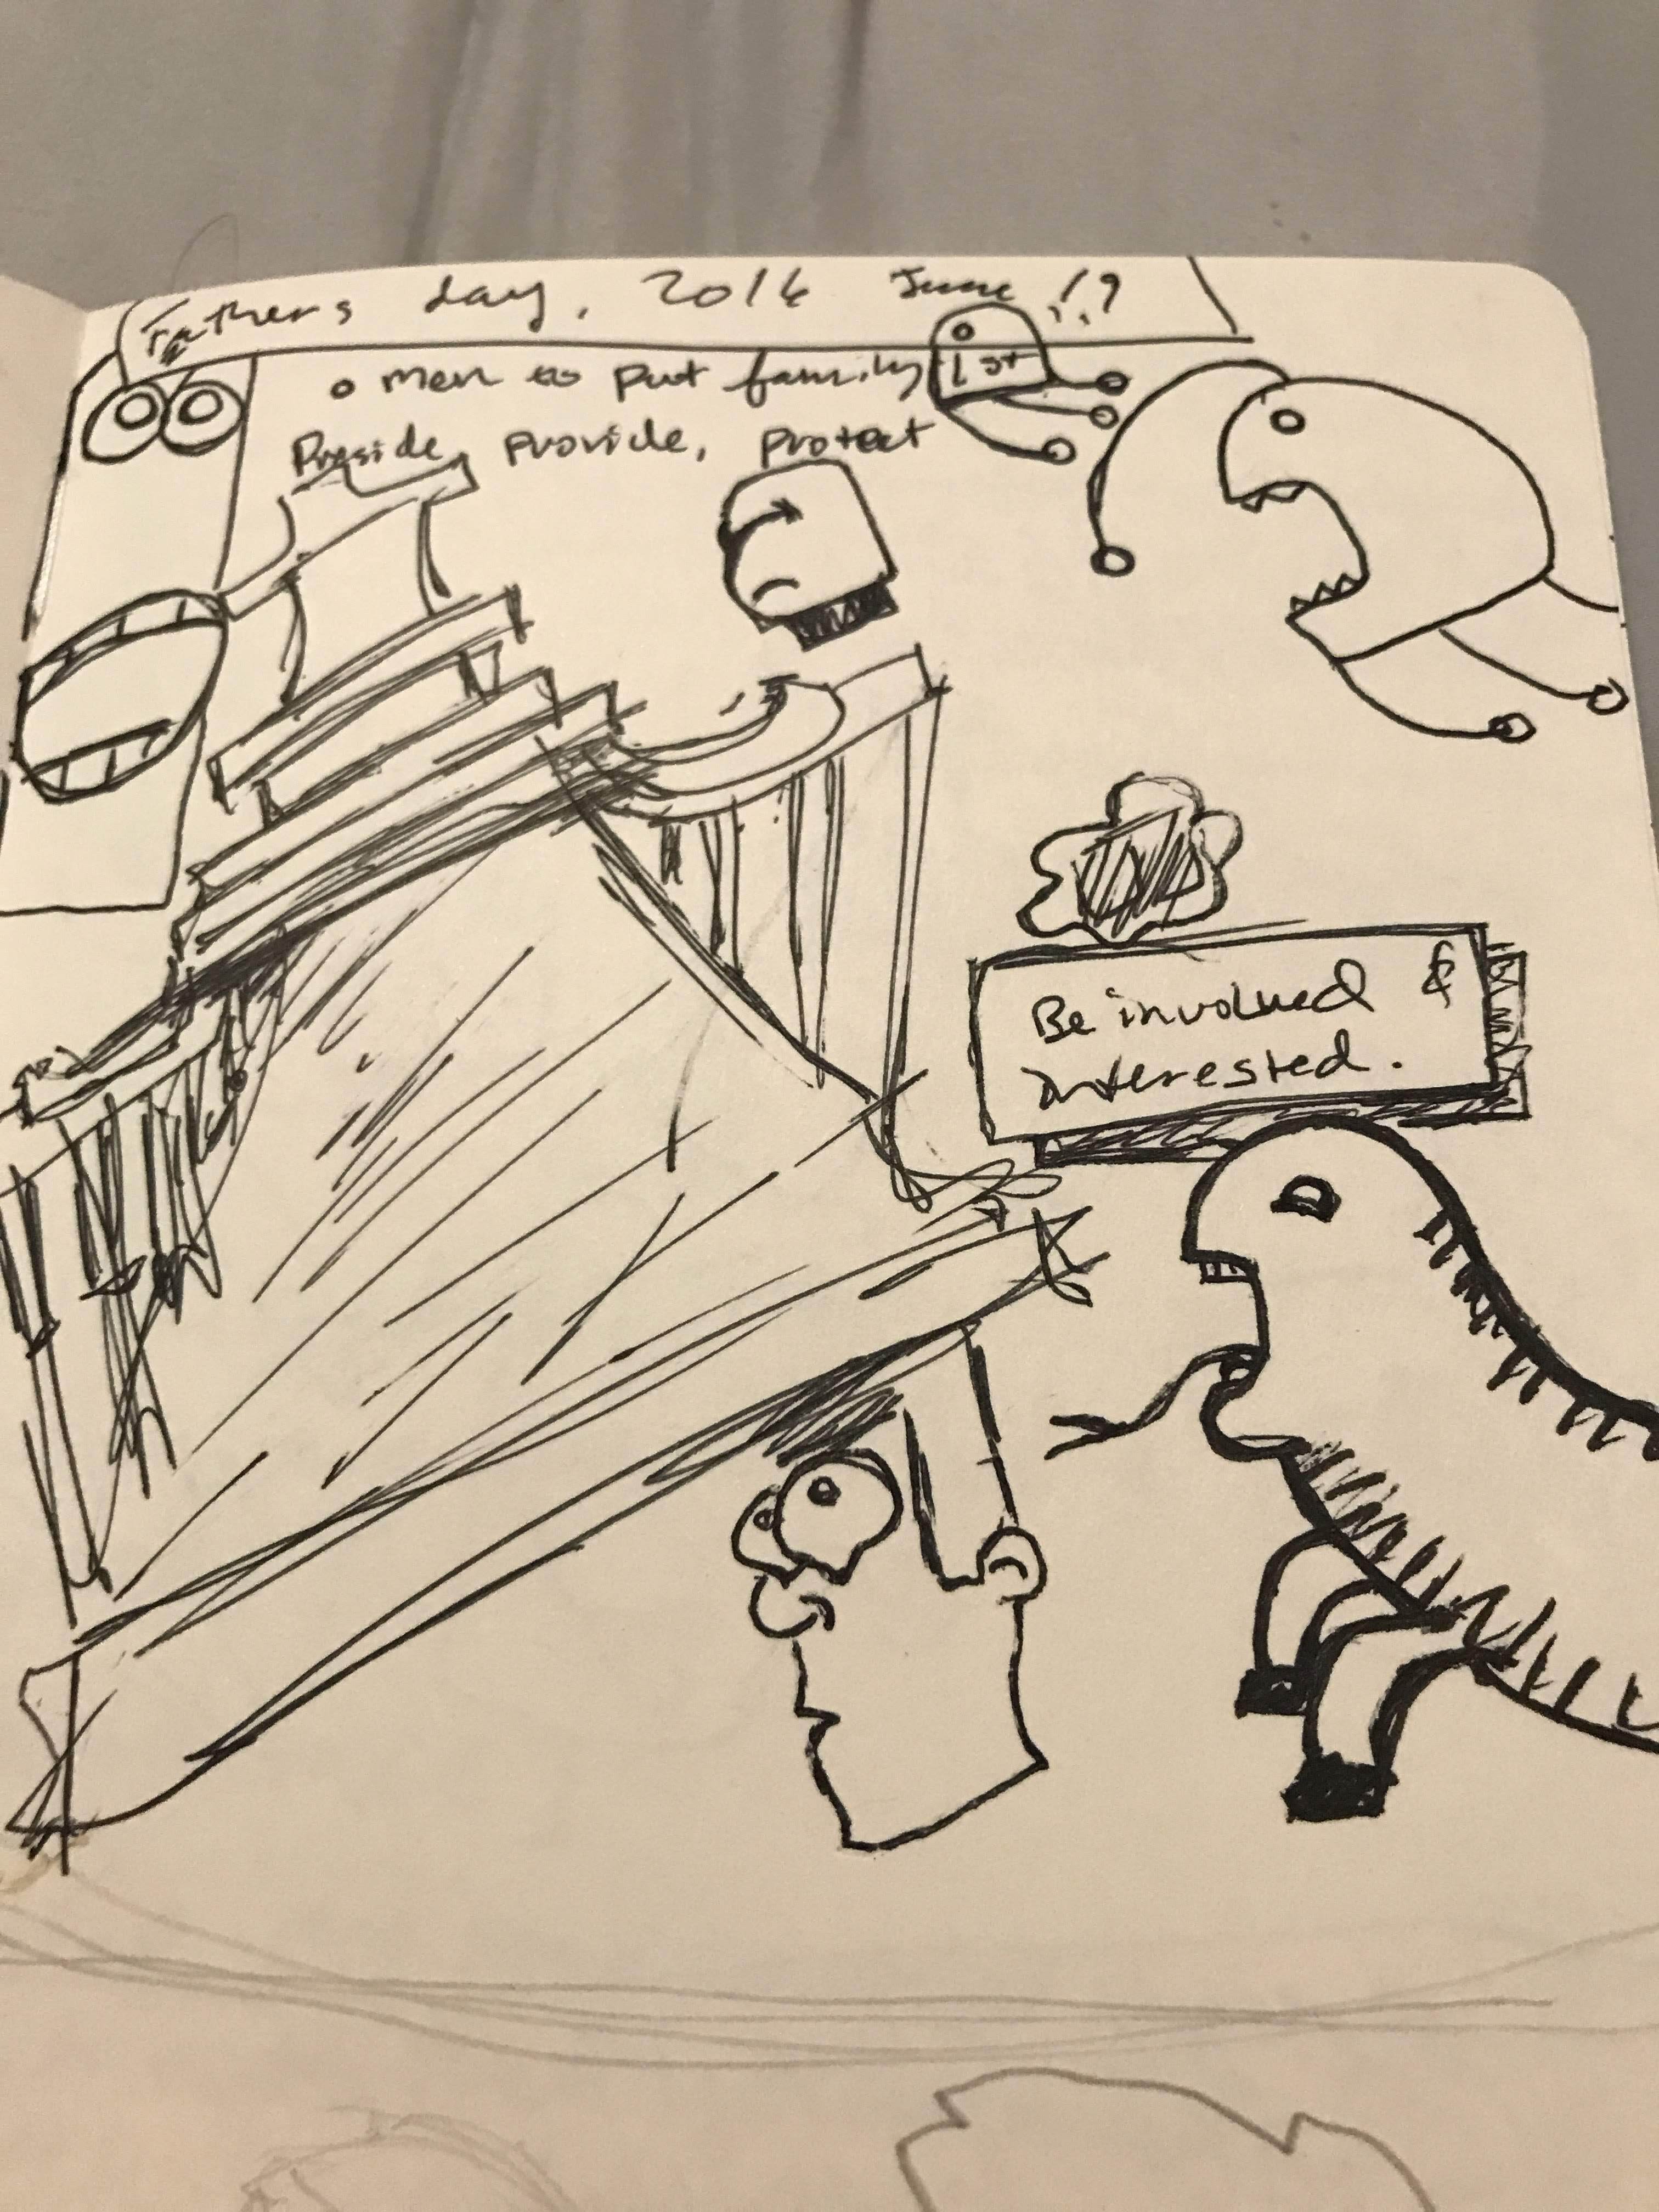 Fathers day, 2016 June 19
• men to put family 1st
Preside, provide, protect
Be involved &
interested.